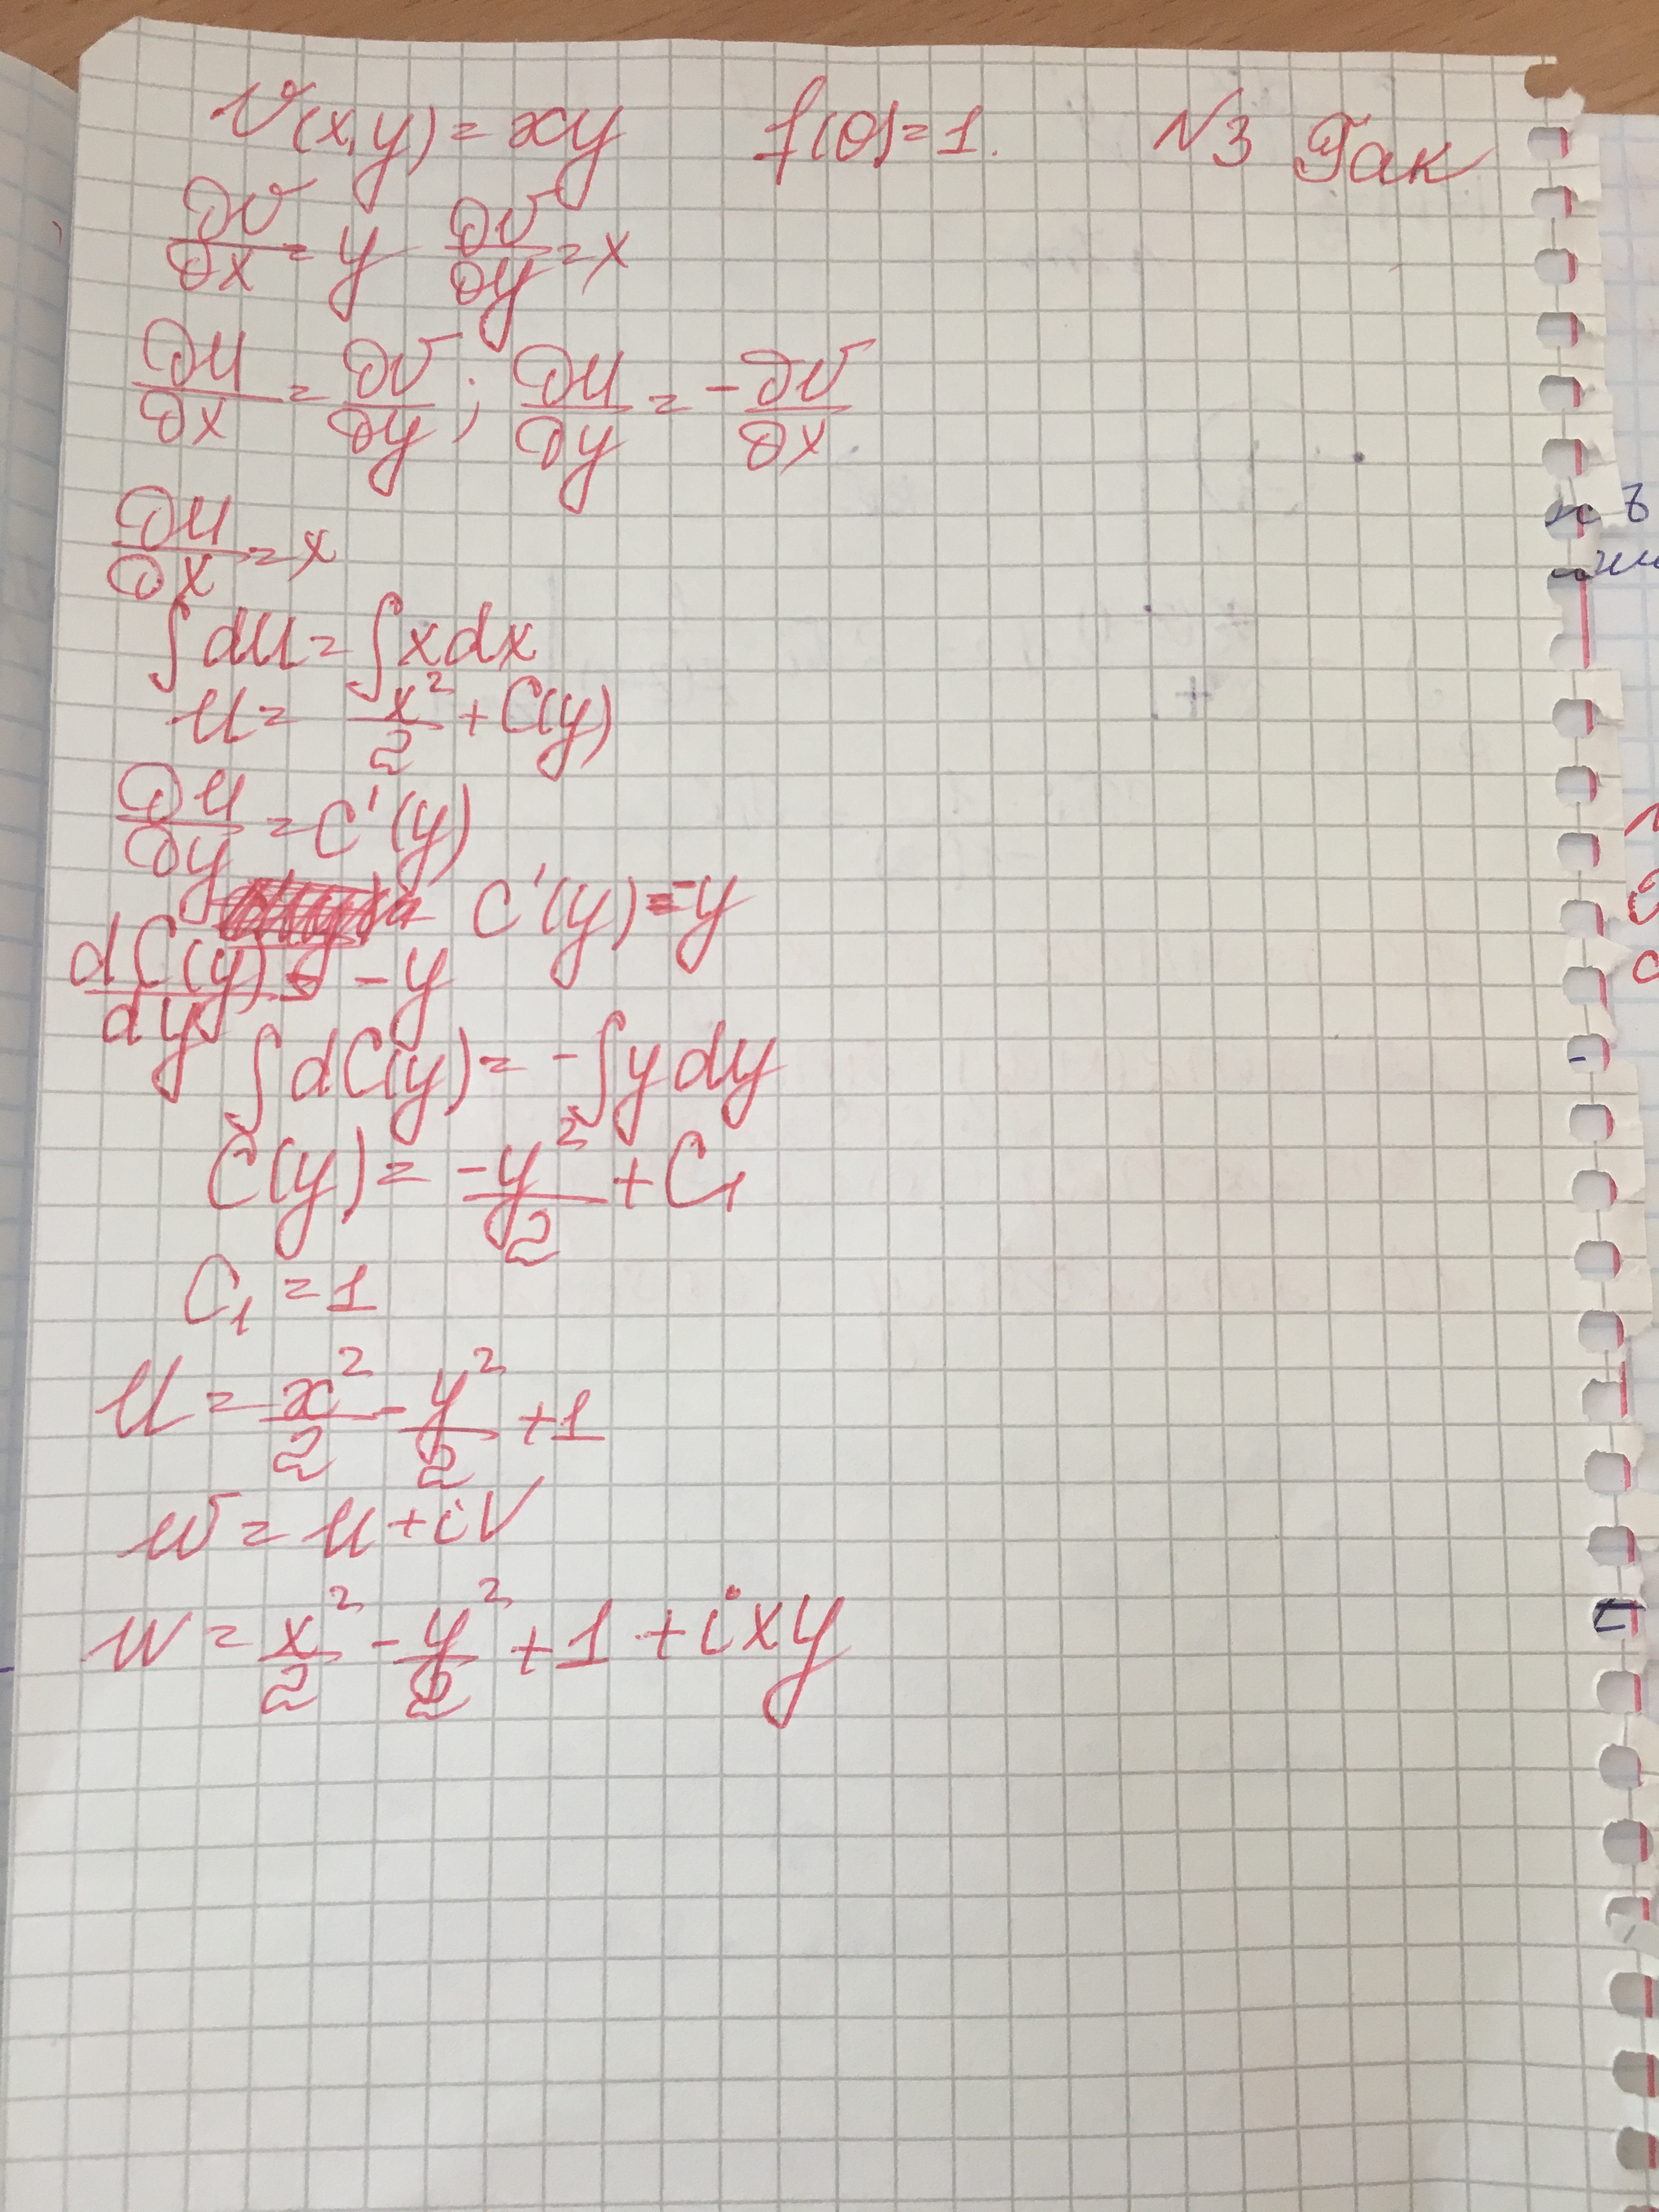 v(x,y) = xy f(0)=1. N3 Гак
∂v/∂x = y ∂v/∂y = x
∂u/∂x = ∂v/∂y ; ∂u/∂y = -∂v/∂x
∂u/∂x = x
∫du = ∫xdx
u = x²/2 + C(y)
∂u/∂y = C'(y)
C'(y) = -y
dC(y)/dy = -y
∫dC(y) = -∫ydy
C(y) = -y²/2 + C₁
C₁ = 1
u = x²/2 - y²/2 + 1
w = u + iV
w = x²/2 - y²/2 + 1 + ixy